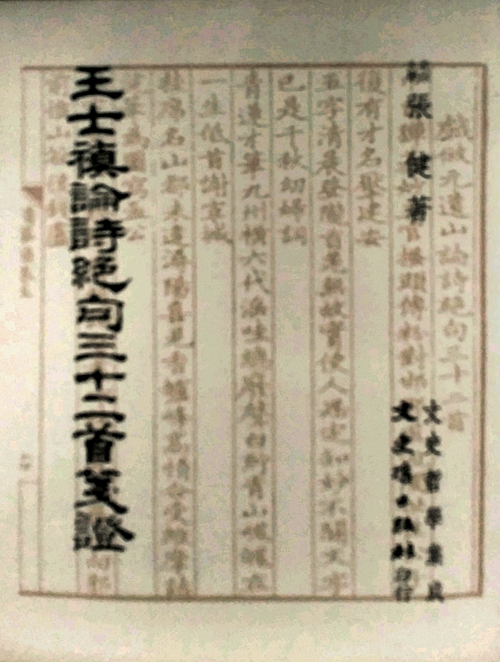 戲倣元遺山論詩絕句三十二首
官搔頭傅粉對邯
復有才名壓建安
五字清晨登隴首羌無故實使人思定知妙不關文字
已是千秋幼婦詞
青蓮才筆九州橫六代淫哇總廢聲白紵青山魂魄在
一生低首謝宣城
掛席名山都未逢潯陽喜見香爐峰高情合受維摩詰
文史哲學集成
文史哲出版社印行
張健著
王士禛論詩絕句三十二首箋證